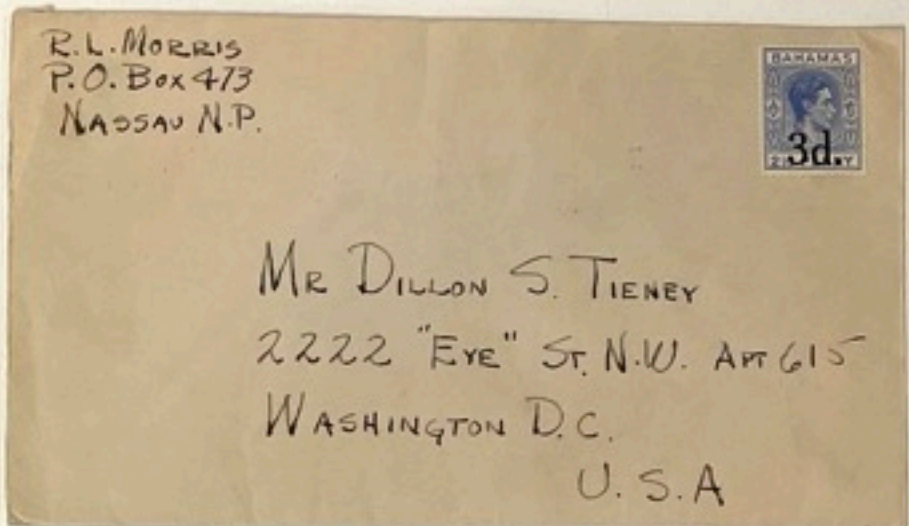 R.L. MORRIS
P.O. BOX 473
NASSAU N.P.
BAHAMAS
3d.
MR DILLON S. TIENEY
2222 "EYE" ST. N.W. APT 615
WASHINGTON D.C.
U.S.A